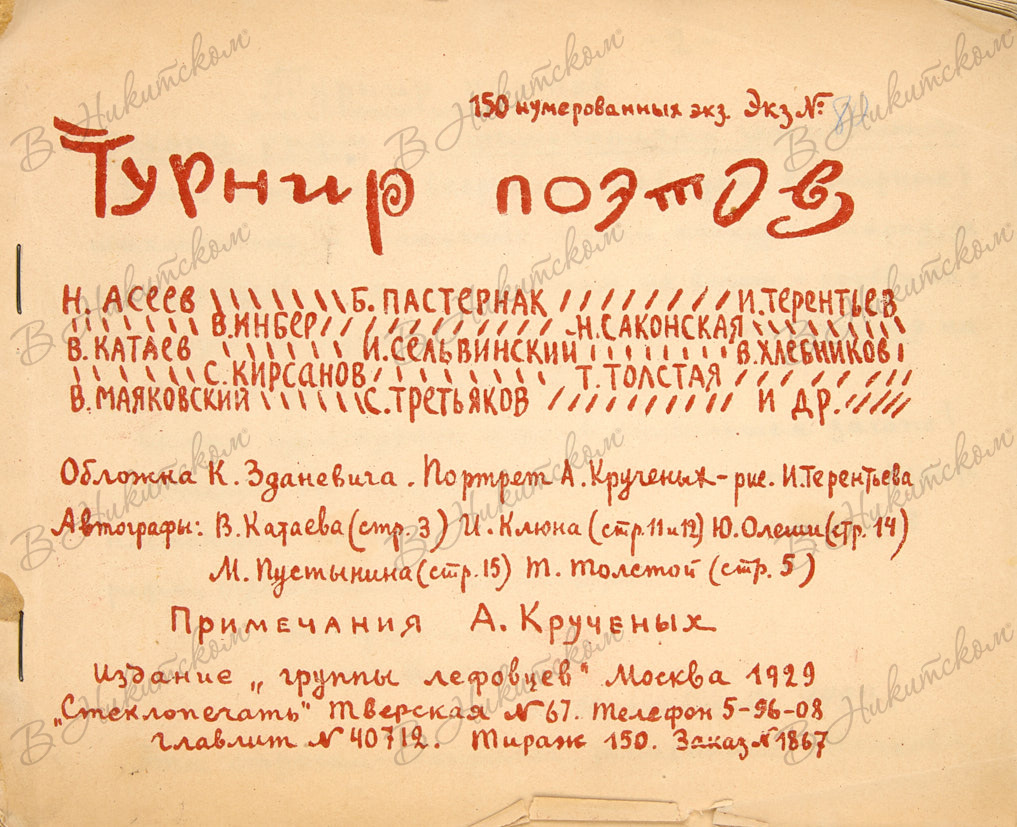 150 нумерованных экз. Экз №: 81
Турнир поэтов
Н. АСЕЕВ Б. ПАСТЕРНАК И. ТЕРЕНТЬЕВ
В. ИНБЕР Н. САКОНСКАЯ
В. КАТАЕВ И. СЕЛЬВИНСКИЙ В. ХЛЕБНИКОВ
С. КИРСАНОВ Т. ТОЛСТАЯ
В. МАЯКОВСКИЙ С. ТРЕТЬЯКОВ И ДР.
Обложка К. Зданевича. Портрет А. Крученых - рис. И. Терентьева
Автографы: В. Катаева (стр. 3) И. Клюна (стр. 11 и 12) Ю. Олеши (стр. 14)
М. Пустынина (стр. 15) Т. Толстой (стр. 5)
Примечания А. Крученых
Издание „группы лефовцев" Москва 1929
„Стеклопечать" Тверская № 67. Телефон 5-96-08
Главлит № 40712. Тираж 150. Заказ № 1867
В Никитском